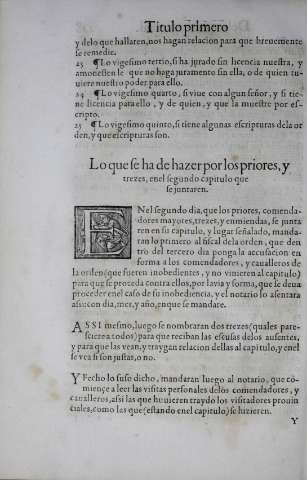 Titulo primero
y delo que hallaren, nos hagan relacion para que breuemente
se remedie.
23 ¶Lo vigesimo tertio, si ha jurado sin licencia nuestra, y
amonesten le que no haga juramento sin ella, o de quien tu-
uiere nuestro poder para ello.
24 ¶Lo vigesimo quarto, si viue con algun señor, y si tie
ne licencia para ello, y de quien, y que la muestre por es-
cripto.
25 ¶Lo vigesimo quinto, si tiene algunas escripturas dela or
den, y que escripturas son.
Lo que se ha de hazer por los priores, y
trezes, en el segundo capitulo que
se juntaren.
ENel segundo dia, que los priores, comenda-
dores mayores, trezes, y enmiendas, se junta
ren en su capitulo, y lugar señalado, manda-
ran lo primero al fiscal dela orden, que den
tro del tercero dia ponga la acusacion en
forma a los comendadores, y caualleros de
la orden (que fueren inobedientes, y no vinieren al capitulo)
para que se proceda contra ellos, por la via y forma, que se deua
proceder en el caso de su inobediencia, y el notario lo asentara
assi con dia, mes, y año, en que se mandare.
ASSI mesmo, luego se nombraran dos trezes (quales pare-
sciere a todos) para que reciban las escusas delos ausentes,
y para que las vean, y traygan relacion dellas al capitulo, y en el
se vea si son justas, o no.
Y Fecho lo suso dicho, mandaran luego al notario, que co-
mieçe a leer las visitas personales delos comendadores, y
caualleros, assi las que huuieren traydo los visitadores prouin
ciales, como las que (estando en el capitulo) se hizieren.
Y